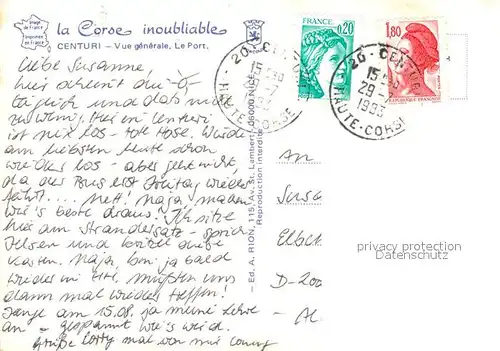 Image de France
Imprimée en France
la Corse inoubliable
CENTURI – Vue générale, Le Port.
Liebe Susanne
hier scheint die
täglich und das nicht
zu wenig. Hier in Centuri
ist nix los – tote Hose. Würde
am liebsten heute schon
wieder los – aber geht nicht,
da der Bus erst Freitag wieder
fährt.... Nett! Naja, machen
wir's beste draus. Ich sitze
hier am Strandersatz – sprich
Felsen und kritzel diese
Karten. Naja, bin ja bald
wieder in HH, müßten uns
dann mal wieder treffen!
Fange am 15.08. ja meine Lehre
an – gespannt wie's wird.
Grüße mal von mir
FRANCE 0,20
1,80
20 - CENTURI
15 H30
29 -7
1993
HAUTE-CORSE
20 - CENTURI
15 H30
29 -7
1993
HAUTE-CORSE
– Ed. A. RION, 115, Av. St. Lambert, 06000 NICE
Reproduction interdite
An
Susa
Elber
D-200
privacy protection
Datenschutz